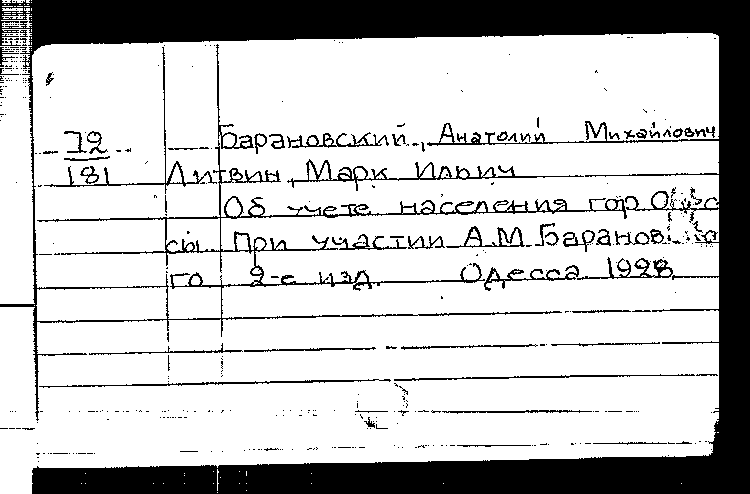 72
181
Барановский, Анатолий Михайлович
Литвин, Марк Ильич
Об учете населения гор
сы. При участии А.М. Баранов
го 2-е изд. Одесса